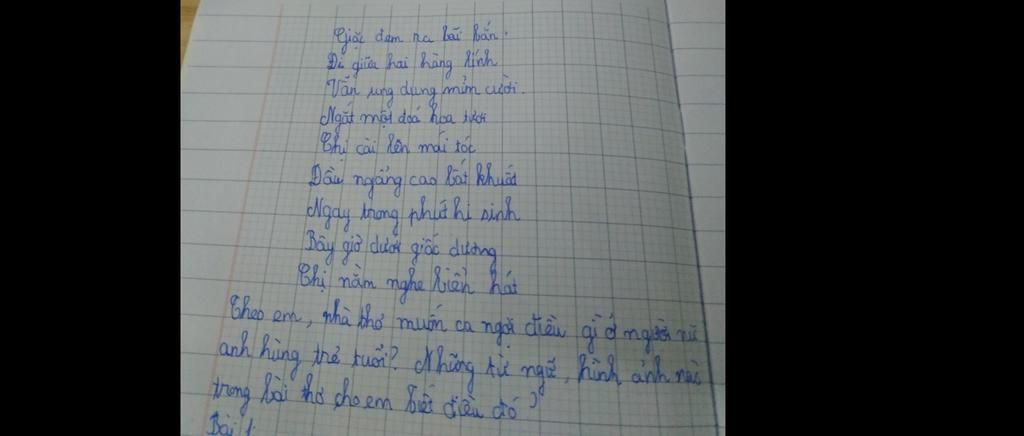 Giặc đem ra bãi bắn.
Đi giữa hai hàng lính
Vẫn ung dung mỉm cười.
Ngắt một đoá hoa tươi
Chị cài lên mái tóc
Đầu ngẩng cao bất khuất
Ngay trong phút hi sinh
Bây giờ dưới gốc dương
Chị nằm nghe biển hát
Theo em, nhà thơ muốn ca ngợi điều gì ở người nữ
anh hùng trẻ tuổi? Những từ ngữ, hình ảnh nào
trong bài thơ cho em biết điều đó?
Bài 1: